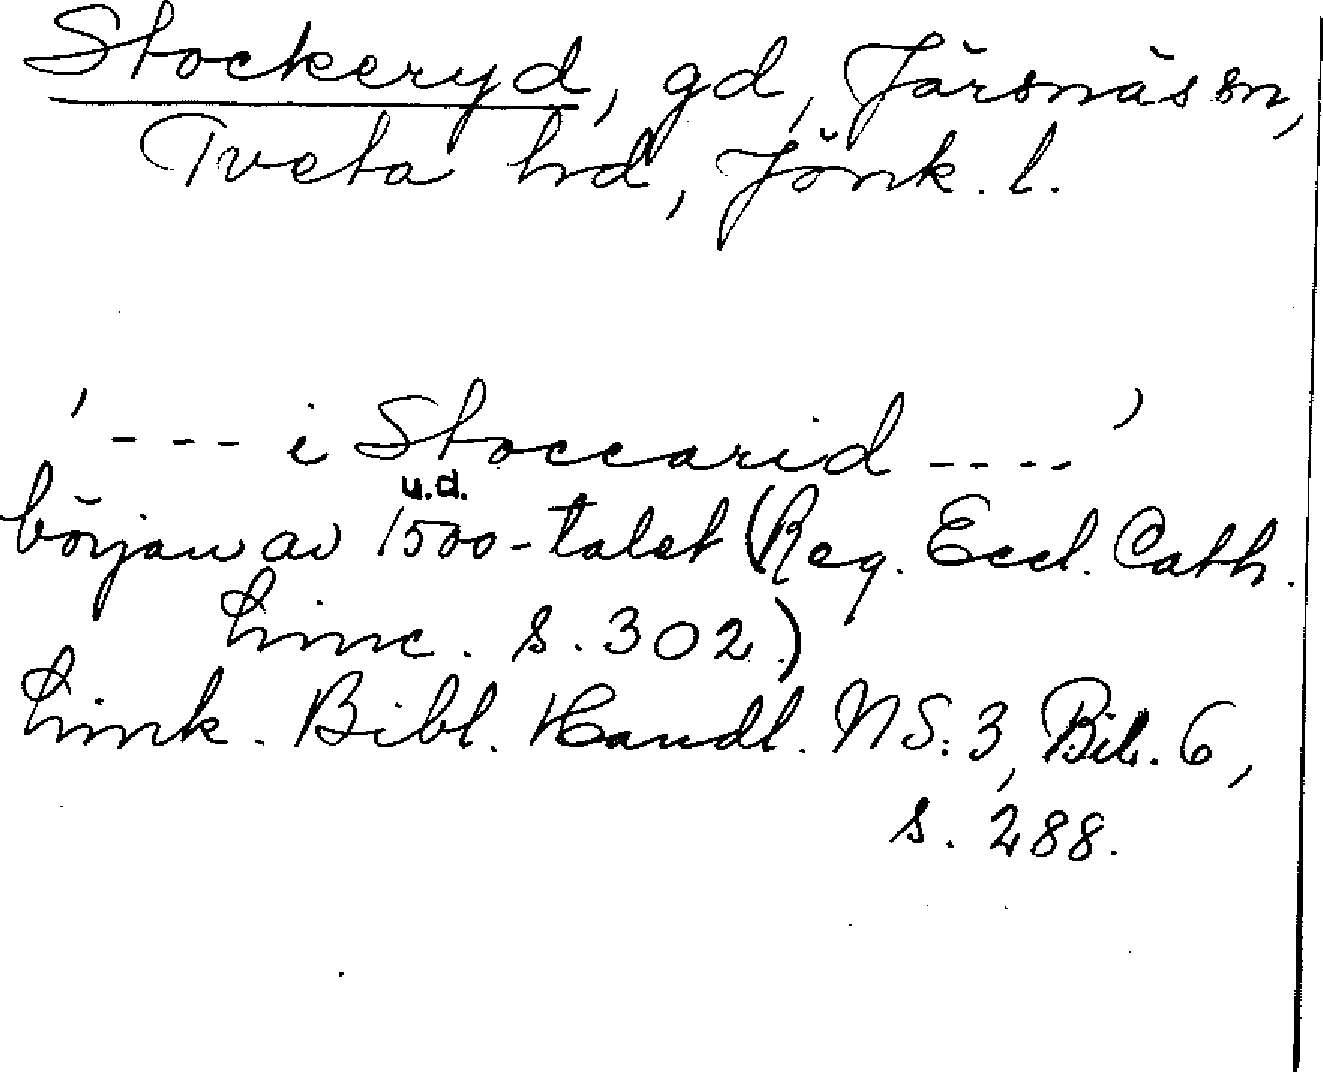 Stockeryd, gd, Järsnäs sn,
Tveta hd, Jönk. l.
' - - - i Stoccarid - - - - '
u.d.
början av 1500-talet (Reg. Eccl. Cath.
Linc. s. 302)
Link. Bibl. Handl. NS. 3, Bil. 6,
s. 288.